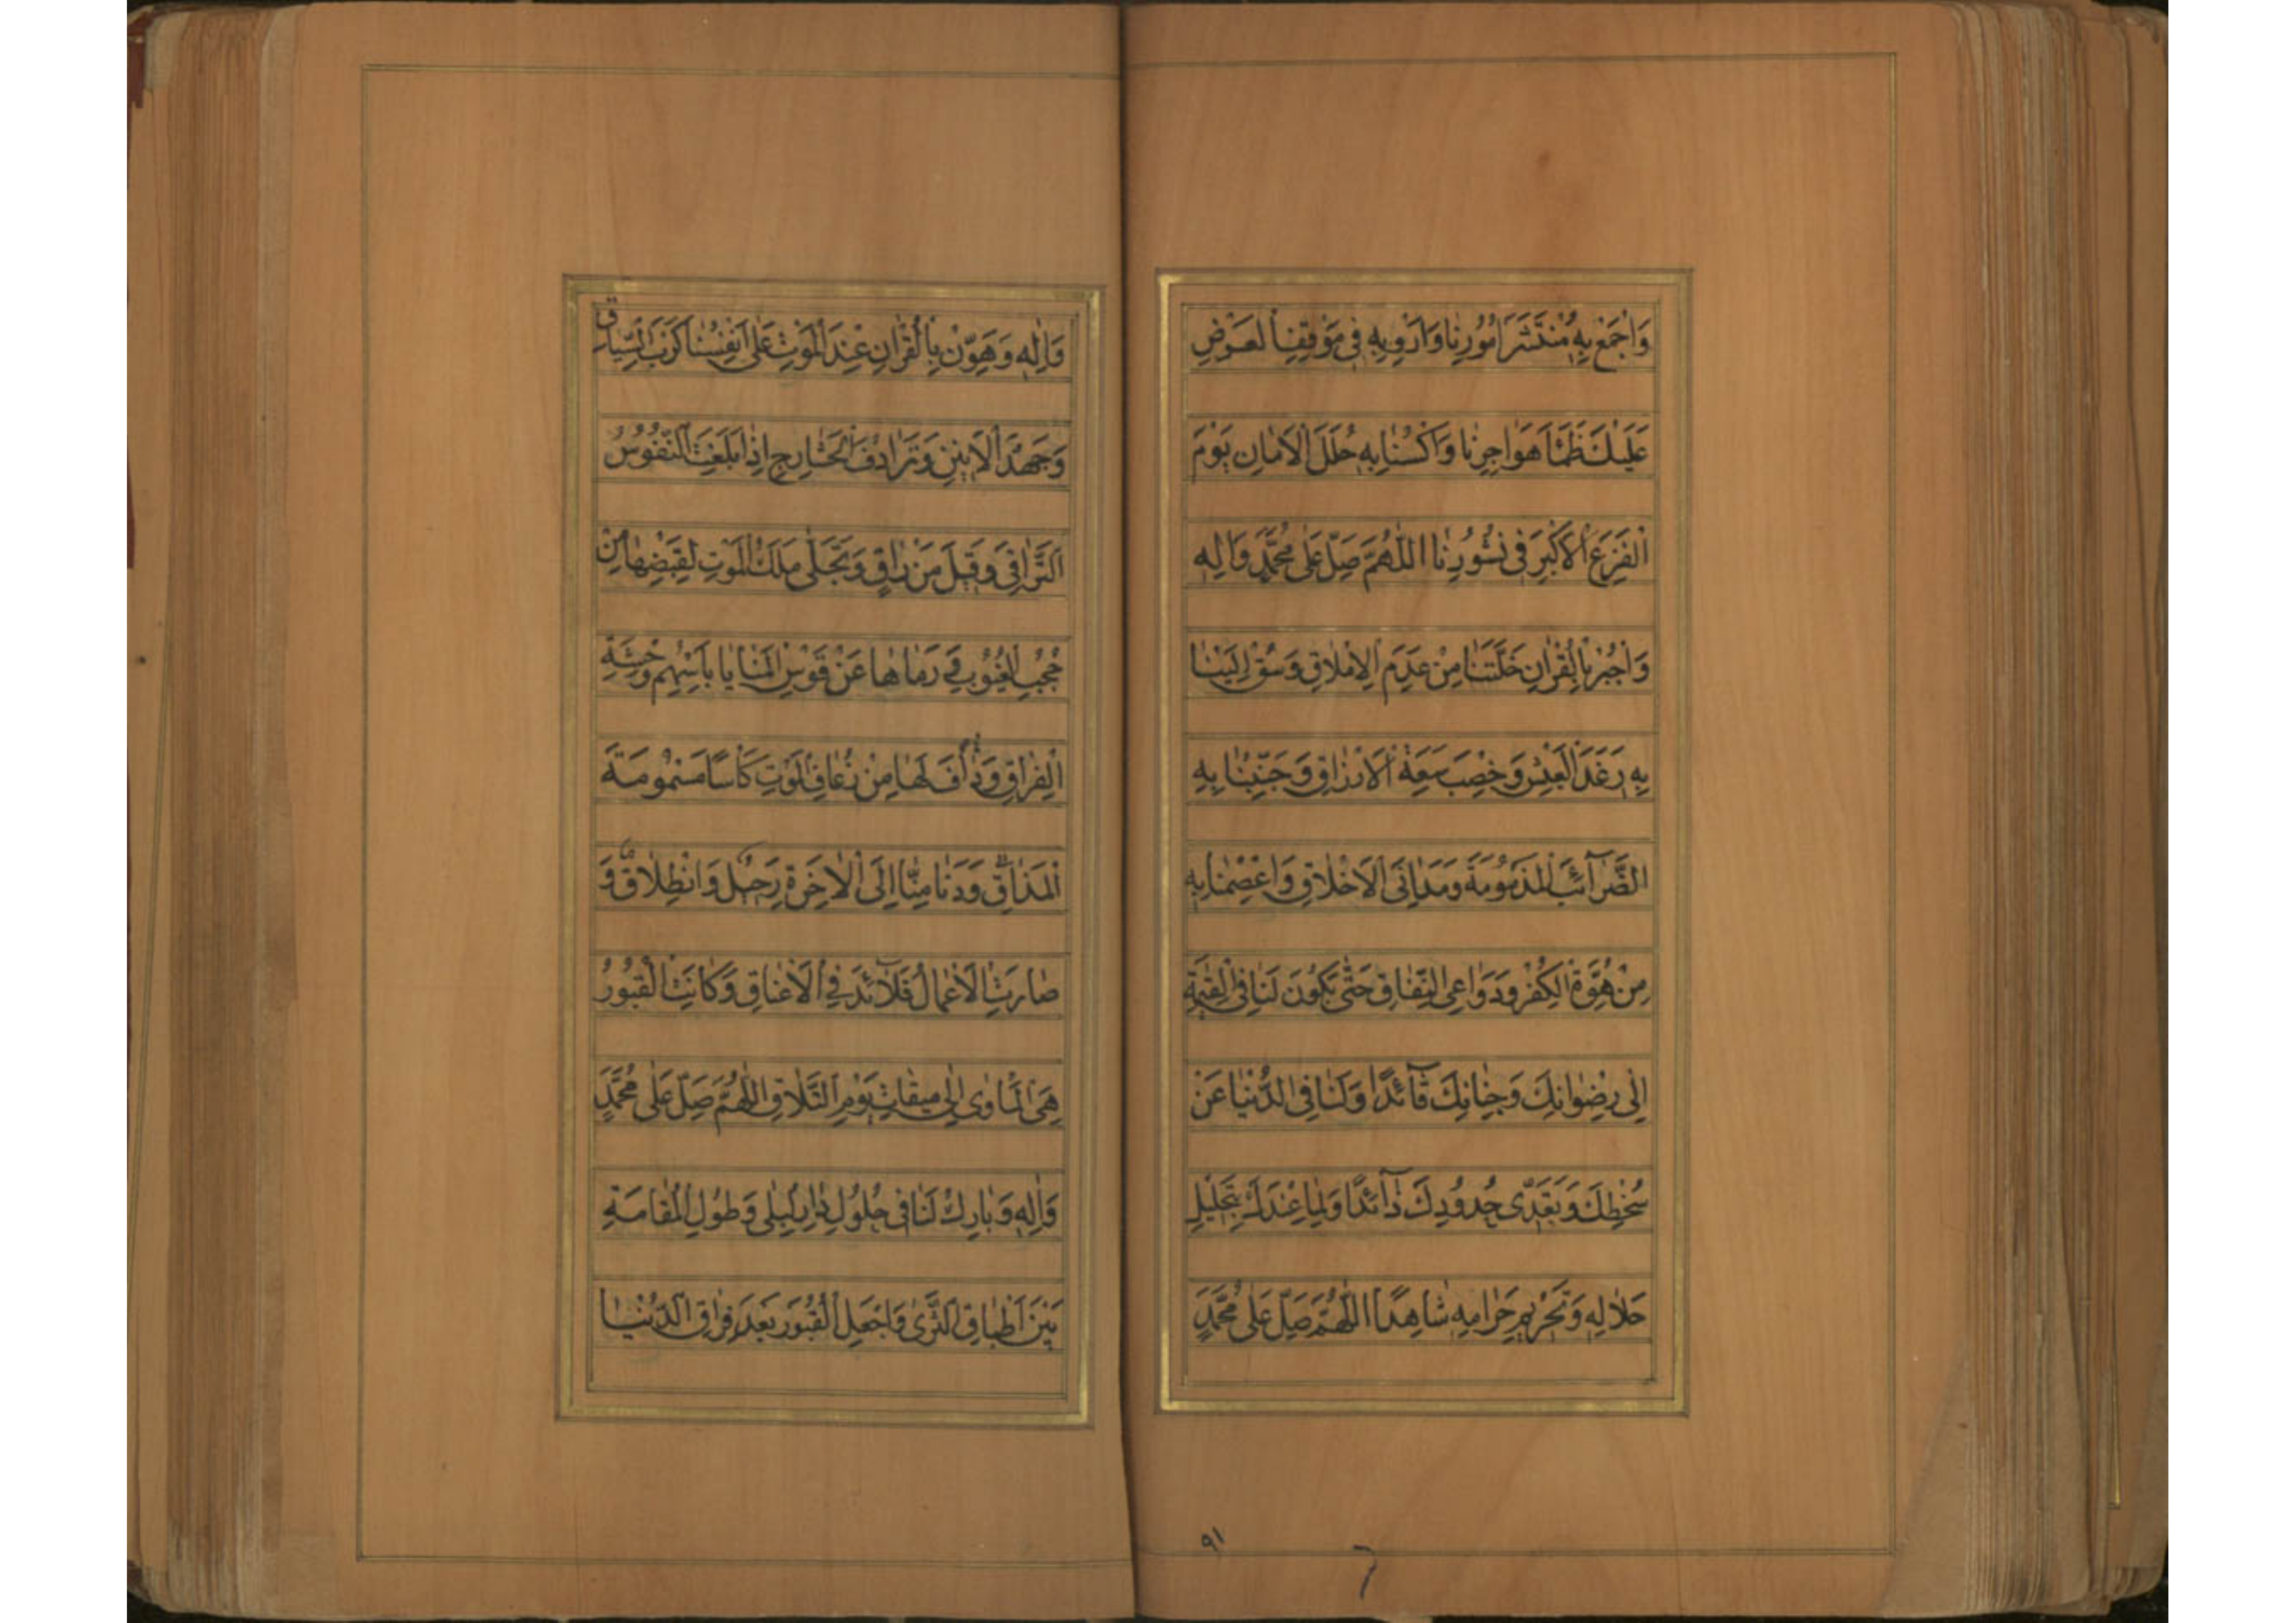 وَاجْمَعْ بِهِ مُنْتَشَرَ اُمُورِنٰا وَاَرْوِ بِهِ فِى مَوْقِفِ الْعَرْضِ
عَلَيْكَ ظَمَأَ هَوٰاجِرِنٰا وَاكْسُنٰا بِهِ حُلَلَ الْاَمٰانِ يَوْمَ
الْفَزَعِ الْاَكْبَرِ فِى نُشُورِنٰا اَللّٰهُمَّ صَلِّ عَلٰى مُحَمَّدٍ وَاٰلِهِ
وَاجْبُرْ بِالْقُرْاٰنِ خَلَّتَنٰا مِنْ عَدَمِ الْاِمْلٰاقِ وَسُقْ اِلَيْنٰا
بِهِ رَغَدَ الْعَيْشِ وَخِصْبَ سَعَةِ الْاَرْزٰاقِ وَجَنِّبْنٰا بِهِ
الضَّرٰٓائِبَ الْمَذْمُومَةَ وَمَدٰانِىَ الْاَخْلٰاقِ وَاعْصِمْنٰا بِهِ
مِنْ هُوَّةِ الْكُفْرِ وَدَوٰاعِى النِّفٰاقِ حَتّٰى يَكُونَ لَنٰا فِى الْقِيٰمَةِ
اِلٰى رِضْوٰانِكَ وَجِنٰانِكَ قٰآئِدًا وَلَنٰا فِى الدُّنْيٰا عَنْ
سُخْطِكَ وَتَعَدِّى حُدُودِكَ ذٰآئِدًا وَلِمٰا عِنْدَكَ بِتَحْلِيلِ
حَلٰالِهِ وَتَحْرِيمِ حَرٰامِهِ شٰاهِدًا اَللّٰهُمَّ صَلِّ عَلٰى مُحَمَّدٍ
وَاٰلِهِ وَهَوِّنْ بِالْقُرْاٰنِ عِنْدَ الْمَوْتِ عَلٰى اَنْفُسِنٰا كَرْبَ السِّيٰاقِ
وَجَهْدَ الْاَنِينِ وَتَرٰادُفَ الْحَشٰارِجِ اِذٰا بَلَغَتِ النُّفُوسُ
التَّرٰاقِىَ وَقِيلَ مَنْ رٰاقٍ وَتَجَلّٰى مَلَكُ الْمَوْتِ لِقَبْضِهٰا مِنْ
حُجُبِ الْغُيُوبِ وَرَمٰاهٰا عَنْ قَوْسِ الْمَنٰايٰا بِاَسْهُمِ وَحْشَةِ
الْفِرٰاقِ وَدٰافَ لَهٰا مِنْ زُعٰافِ الْمَوْتِ كَاْسًا مَسْمُومَةَ
الْمَذٰاقِ وَدَنٰا مِنّٰا اِلَى الْاٰخِرَةِ رَحِيلٌ وَانْطِلٰاقٌ وَ
صٰارَتِ الْاَعْمٰالُ قَلٰآئِدَ فِى الْاَعْنٰاقِ وَكٰانَتِ الْقُبُورُ
هِىَ الْمَاْوٰى اِلٰى مِيقٰاتِ يَوْمِ التَّلٰاقِ اَللّٰهُمَّ صَلِّ عَلٰى مُحَمَّدٍ
وَاٰلِهِ وَبٰارِكْ لَنٰا فِى حُلُولِ دٰارِ الْبِلٰى وَطُولِ الْمُقٰامَةِ
بَيْنَ اَطْبٰاقِ الثَّرٰى وَاجْعَلِ الْقُبُورَ بَعْدَ فِرٰاقِ الدُّنْيٰا
٩١